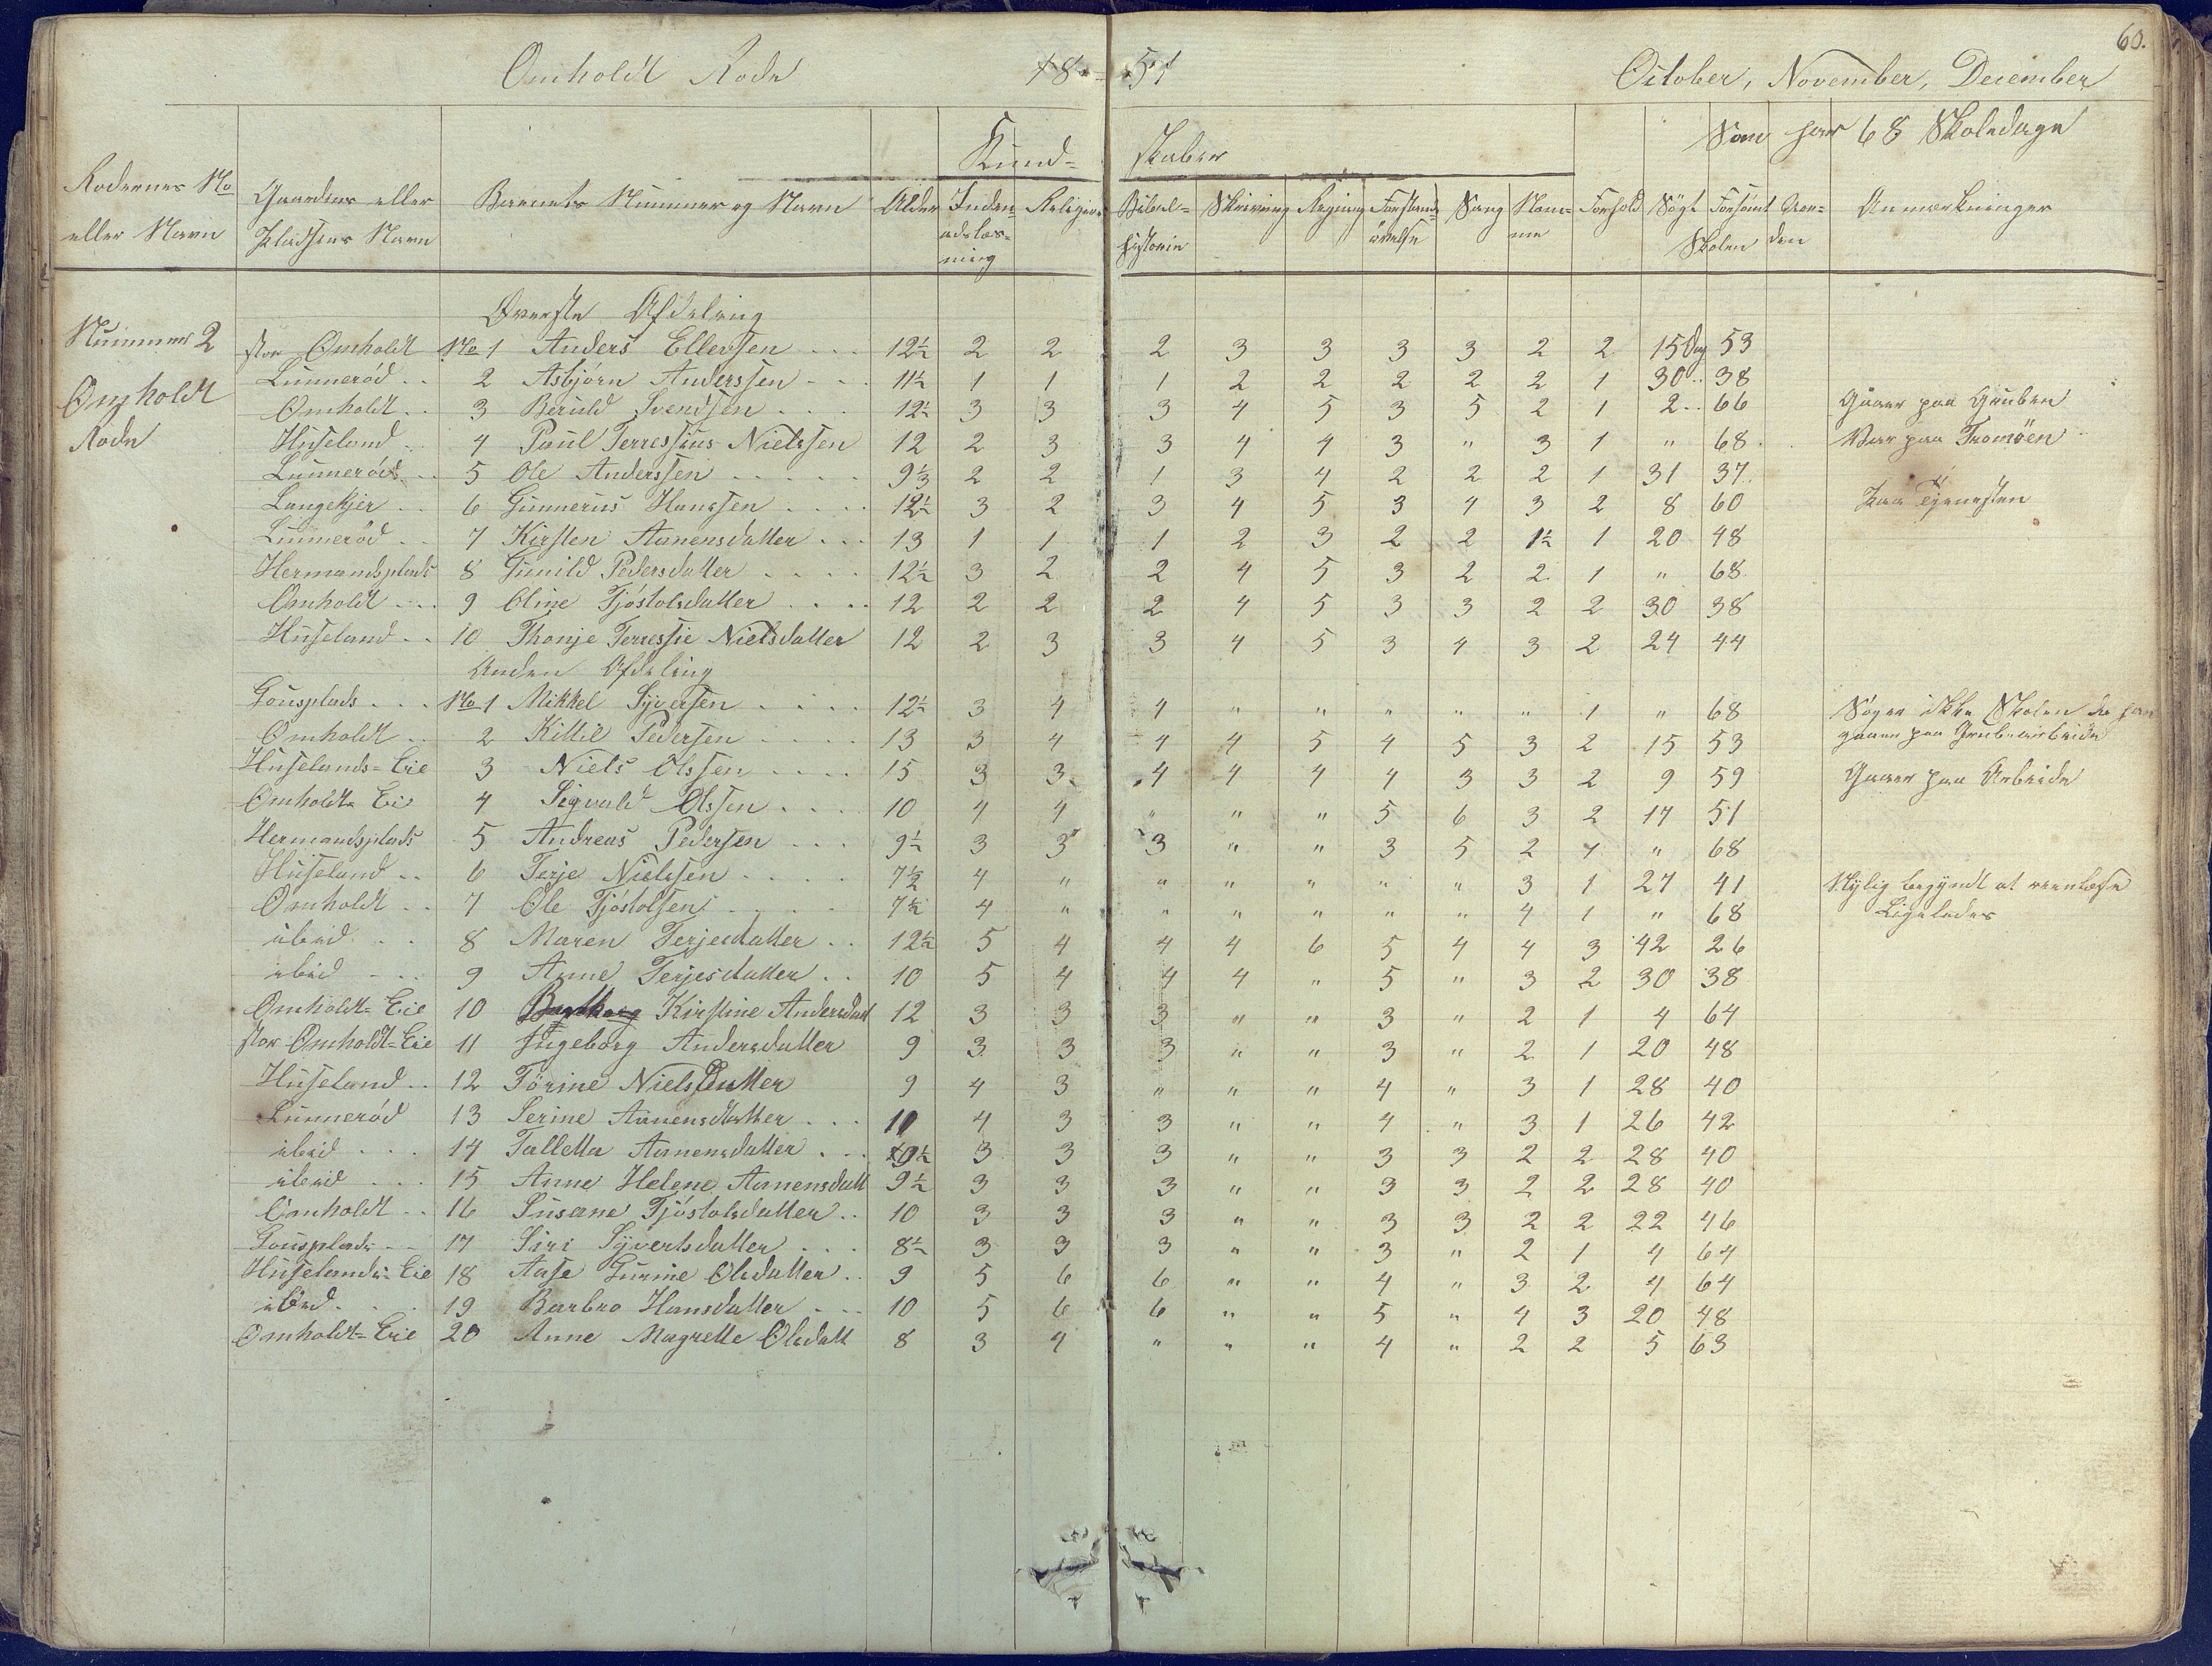 60.
Omholdt Rode 18 51 October, November, December
Som har 68 Skoledage
Kund= skaber
Rodernes No eller Navn
Gaardens eller Pladsens Navn
Barnets Nummer og Navn
Alder
Inden= adslæs= ning
Religion
Bibel= historie
Skrivning
Regning
Forstands øvelse
Sang
Nem= me
Forhold
Søgt Forsömt Skolen
Anmærkninger
Øverste Afdeling
Nummer 2
Omholdt
Rode
stor Omholdt No 1 Anders Ellefsen . . . 12½ 2 2 2 3 3 3 3 2 2 15 Dag 53
Lunnerød . . 2 Asbjørn Anderssen . . . 11½ 1 1 1 2 2 2 2 2 1 30 .. 38
Omholdt . . 3 Beruld Svendsen . . . . 12½ 3 3 3 4 5 3 5 2 1 2 .. 66 Gaaer paa Gruben
Huseland . . 4 Poul Terressius Nielssen 12 2 3 3 4 4 3 " 3 1 " 68 Var paa Tromöen
Lunnerød . . 5 Ole Anderssen . . . . . 9⅓ 2 2 1 3 4 2 2 2 1 31 37
Langekjer . . 6 Gunnerius Hanssen . . . . 12½ 3 2 3 4 5 3 4 3 2 8 60 Paa Tjenesten
Lunnerød . . 7 Kirsten Aanensdatter . . . 13 1 1 1 2 3 2 2 1½ 1 20 48
Hermandsplads 8 Gunild Pedersdatter . . . . 12½ 3 2 2 4 5 3 2 2 1 " 68
Omholdt . . . 9 Oline Tjöstolsdatter . . . . 12 2 2 2 4 5 3 3 2 2 30 38
Huseland . . 10 Thonje Terressie Nielsdatter 12 2 3 3 4 5 3 4 3 2 24 44
Anden Afdeling
Gousplads . . . No 1 Mikkel Syversen . . . . 12½ 3 4 4 " " " " " 1 " 68 Søger ikke Skolen da han
Omholdt . . 2 Kittil Pedersen . . . . 13 3 4 4 4 5 4 5 3 2 15 53 gaaer paa Grubearbeide
Huselands=Eie 3 Niels Olssen . . . . 15 3 3 4 4 4 4 3 3 2 9 59 Gaaer paa Arbeide
Omholdt= Eie 4 Sigvald Olssen . . . 10 4 4 " " " 5 6 3 2 17 51
Hermandsplads 5 Andreas Pedersen . . . 9½ 3 3 3 " " 3 5 2 1 " 68
Huseland . . 6 Terje Nielssen . . . . 7½ 4 " " " " " " 3 1 27 41 Nylig begyndt at reenlæse
Omholdt . . 7 Ole Tjöstolsen . . . . 7½ 4 " " " " " " 4 1 " 68 Ligeledes
ibid . . 8 Maren Terjesdatter . . 12½ 5 4 4 4 6 5 4 4 3 42 26
ibid . . . 9 Anne Terjesdatter . . 10 5 4 4 4 " 5 " 3 2 30 38
Omholdt= Eie 10 Kirstine Andersdatt 12 3 3 3 " " 3 " 2 1 4 64
stor Omholdt=Eie 11 Ingeborg Andersdatter 9 3 3 3 " " 3 " 2 1 20 48
Huseland . . 12 Törine Nielsdatter 9 4 3 " " " 4 " 3 1 28 40
Lunnerød 13 Serine Aanensdatter . . . 11 4 3 3 " " 4 " 3 1 26 42
ibid . . . 14 Talletta Aanensdatter . . . 9½ 3 3 3 " " 3 3 2 2 28 40
ibid . . . 15 Anne Helene Aanensdatt 9½ 3 3 3 " " 3 3 2 2 28 40
Omholdt . . 16 Susanne Tjöstolsdatter . . 10 3 3 3 " " 3 3 2 2 22 46
Gousplads . . 17 Siri Syvertsdatter . . . 8½ 3 3 3 " " 3 " 2 1 4 64
Huselands=Eie 18 Aase Gurine Olsdatter . . 9 5 6 6 " " 4 " 3 2 4 64
ibid . . . 19 Barbro Hansdatter . . . 10 5 6 6 " " 5 " 4 3 20 48
Omholdt=Eie 20 Anne Magrette Olsdatt 8 3 4 " " " 4 " 2 2 5 63